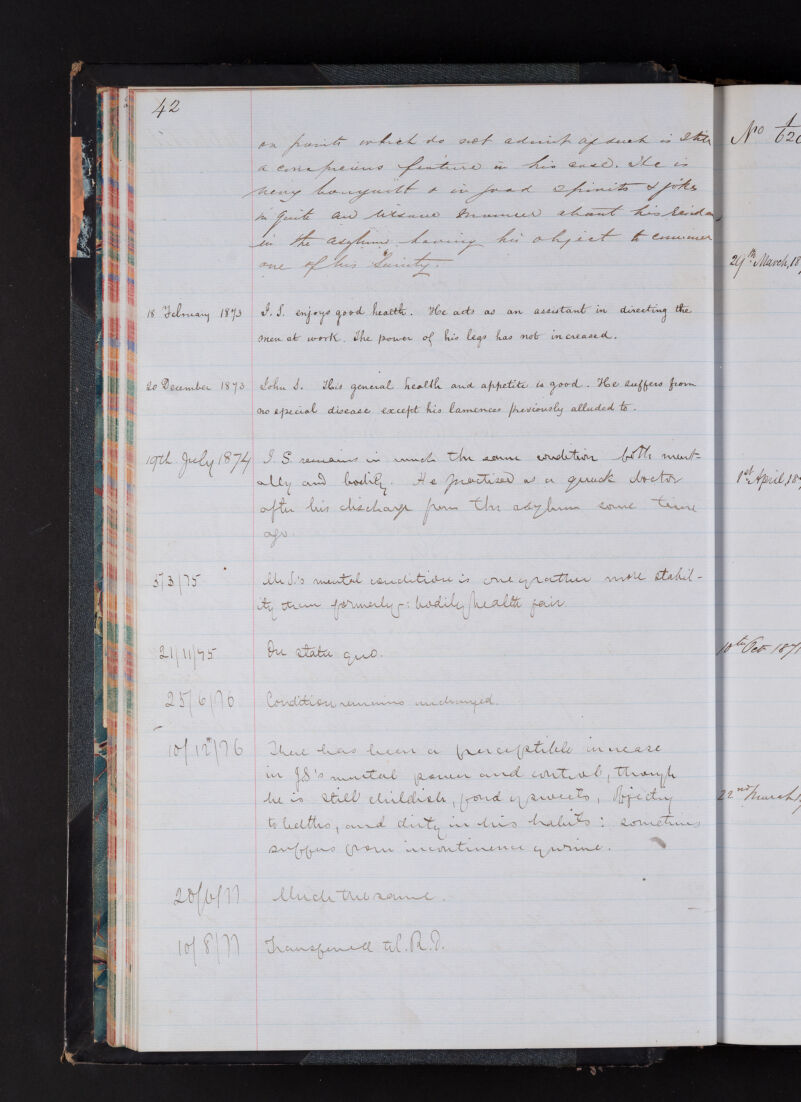 42
on points which do not admit of such is still
a conspicuous feature in his case. He is
very bouyant & in good spirits & jokes
in quite an manner about his
in the asylum having his object to convince
one of his Sanity.
18 February 1873 J. S. enjoys good health. He acts as an assistant in directing the
men at work. The power of his legs has not increased.
20 December 1873 John S. His general health and appetite is good. He suffers from
no special disease except his lameness previously alluded to.
19th July 1874 J. S. remains in much the same condition both ment-
ally and bodily. He practised as a quack doctor
after his discharge from the asylum some time
ago.
5/3/75 Mr S.'s mental condition is one of rather more stabil-
ity than formerly: bodily health fair.
21/11/75 In statu quo.
25/6/76 Condition remains unchanged.
10/12/76 There has been a perceptible increase
in J S's mental power and control, though
he is still childish, fond of sweets,
to baths, and dirty in his habits: sometimes
suffers from incontinence of urine.
20/6/77 Much the same.
10/8/77 Transferred
No 620
29th March, 18
1st April, 18
10th Oct 187
22nd March